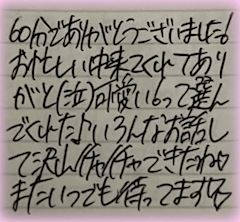 60分でありがとうございました!
お忙しい中来てくれてあり
がと(泣)可愛いって選ん
でくれた♪いろんなお話し
て沢山イチャイチャできたねや
またいつでも待ってます♡